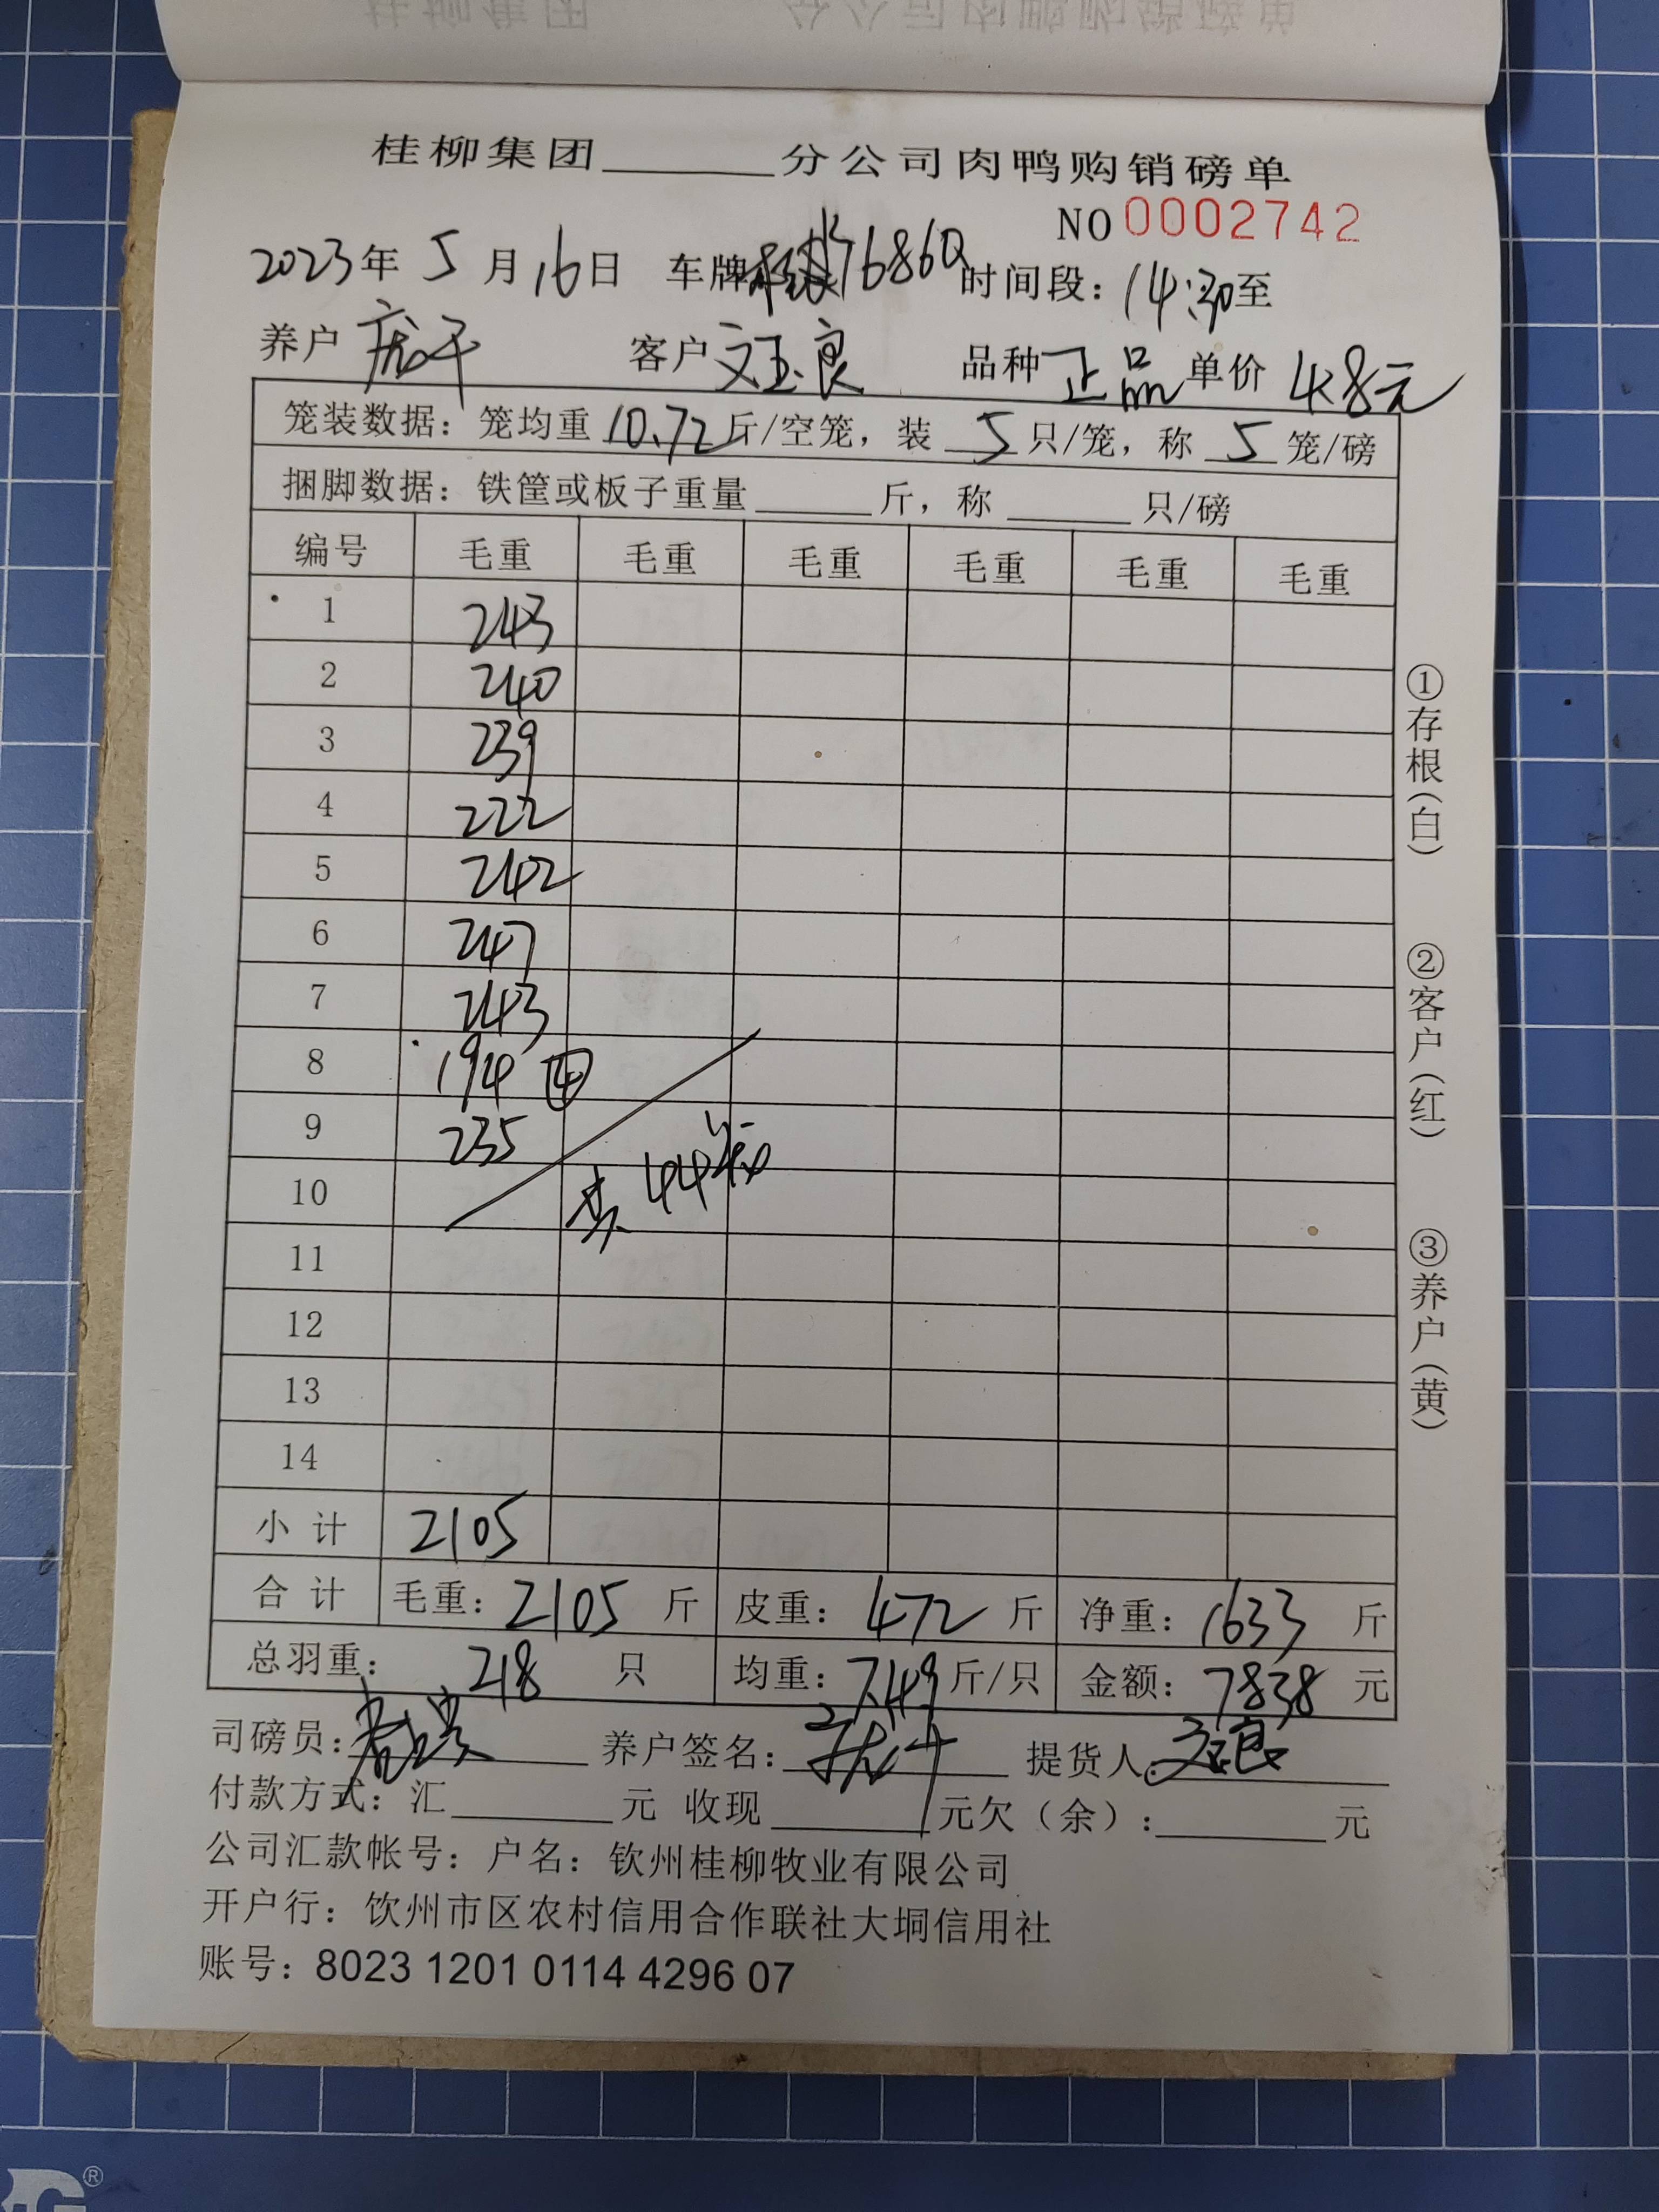 桂柳集团______分公司肉鸭购销磅单
NO 0002742
2023年 5 月 16日 车牌 76860 时间段：14:30至
养户 庞平 客户 文玉良 品种 正品 单价 4.8元
笼装数据：笼均重 10.72 斤/空笼，装 5 只/笼，称 5 笼/磅
捆脚数据：铁筐或板子重量______斤，称______只/磅
编号 毛重 毛重 毛重 毛重 毛重 毛重
1 243
2 240
3 239
4 222
5 242
6 247
7 243
8 194 ④
9 235
10 共 44笼
11
12
13
14
小 计 2105
合 计 毛重：2105 斤 皮重：472 斤 净重：1633 斤
总羽重：218 只 均重：7.49 斤/只 金额：7838 元
司磅员： 养户签名： 提货人：文玉良
付款方式：汇______元 收现______元欠（余）：______元
公司汇款帐号：户名：钦州桂柳牧业有限公司
开户行：饮州市区农村信用合作联社大垌信用社
账号：8023 1201 0114 4296 07
①存根（白）
②客户（红）
③养户（黄）